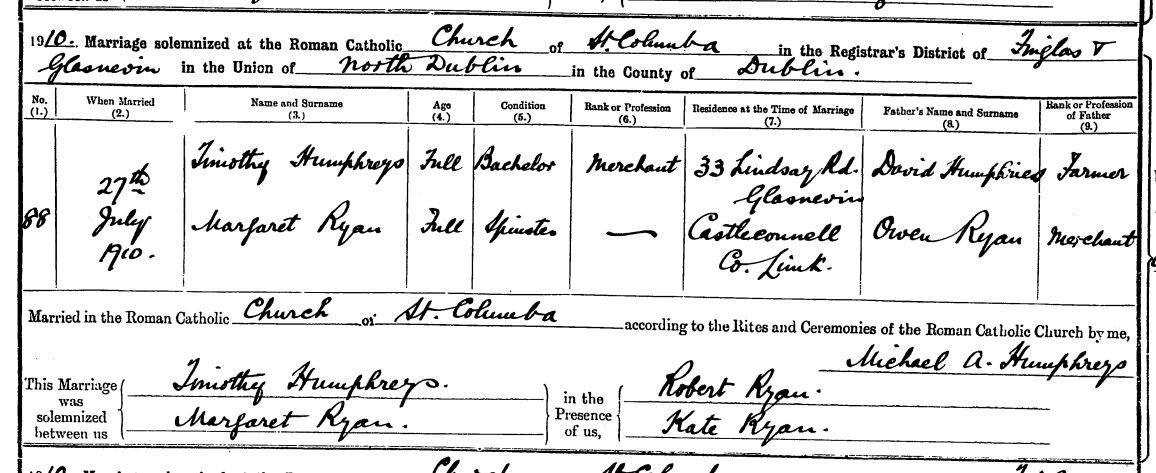 1910. Marriage solemnized at the Roman Catholic Church of St. Columba in the Registrar's District of Finglas &
Glasnevin in the Union of North Dublin in the County of Dublin.
No. (1.) When Married (2.) Name and Surname (3.) Age (4.) Condition (5.) Rank or Profession (6.) Residence at the Time of Marriage (7.) Father's Name and Surname (8.) Rank or Profession of Father (9.)
88 27th July 1910.
Timothy Humphreys Full Bachelor Merchant 33 Lindsay Rd. Glasnevin David Humphries Farmer
Margaret Ryan Full Spinster — Castleconnell Co. Limk. Owen Ryan Merchant
Married in the Roman Catholic Church of St. Columba according to the Rites and Ceremonies of the Roman Catholic Church by me,
Michael A. Humphreys
This Marriage was solemnized between us
Timothy Humphreys.
Margaret Ryan.
in the Presence of us,
Robert Ryan.
Kate Ryan.